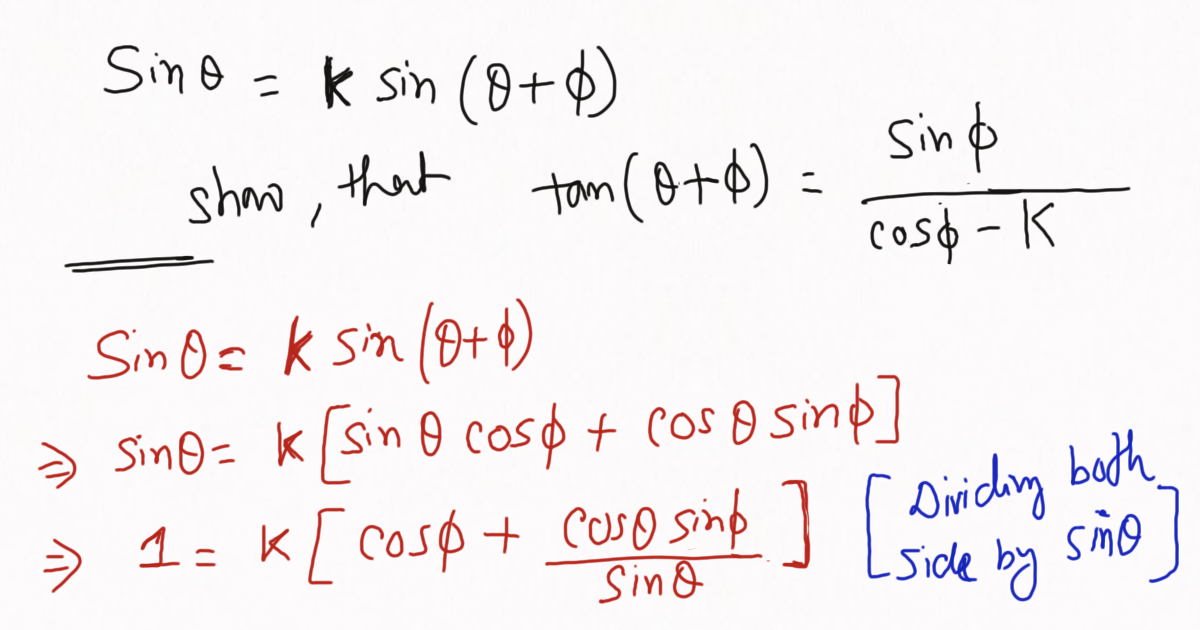 Sin θ = k sin (θ+ϕ)
show, that tan(θ+ϕ) = sin ϕ / cosϕ - K
Sin θ = k sin (θ+ϕ)
⇒ sinθ = k [sin θ cosϕ + cos θ sinϕ]
⇒ 1 = k [cosϕ + cosθ sinϕ / sin θ] [Dividing both side by sinθ]